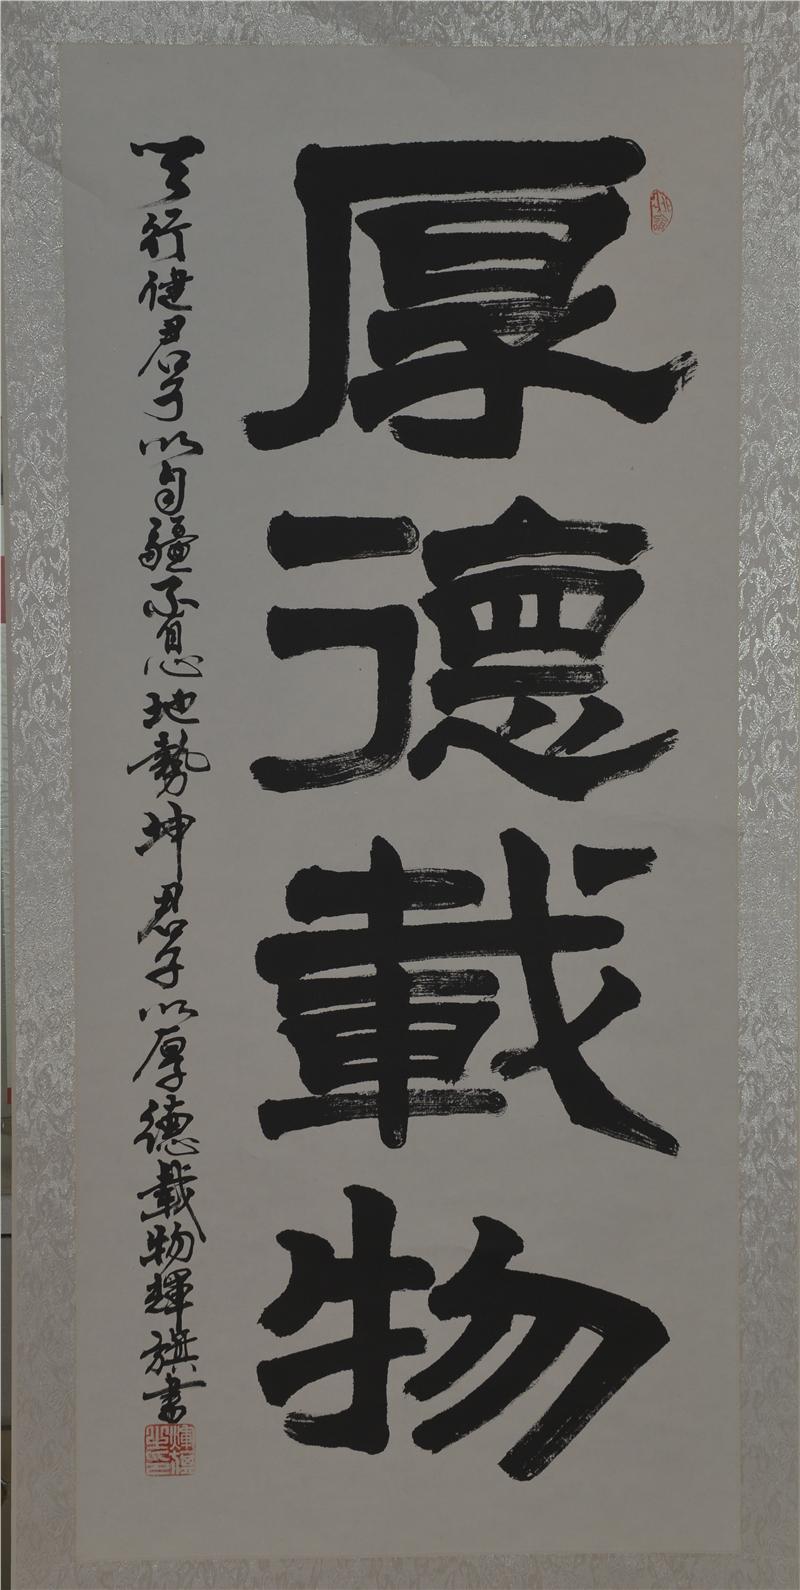 厚德載物
天行健君子以自彊不息地勢坤君子以厚德載物輝旗書